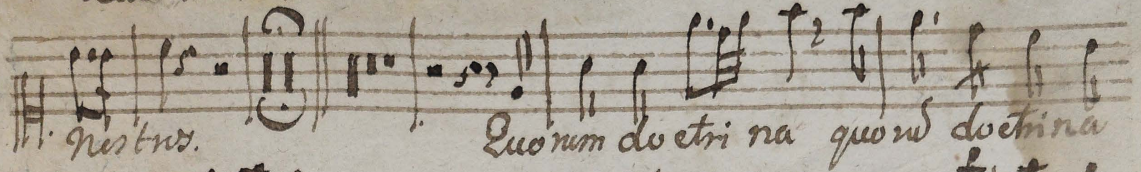 nostros. Quorum doctrina quorũ doctrina